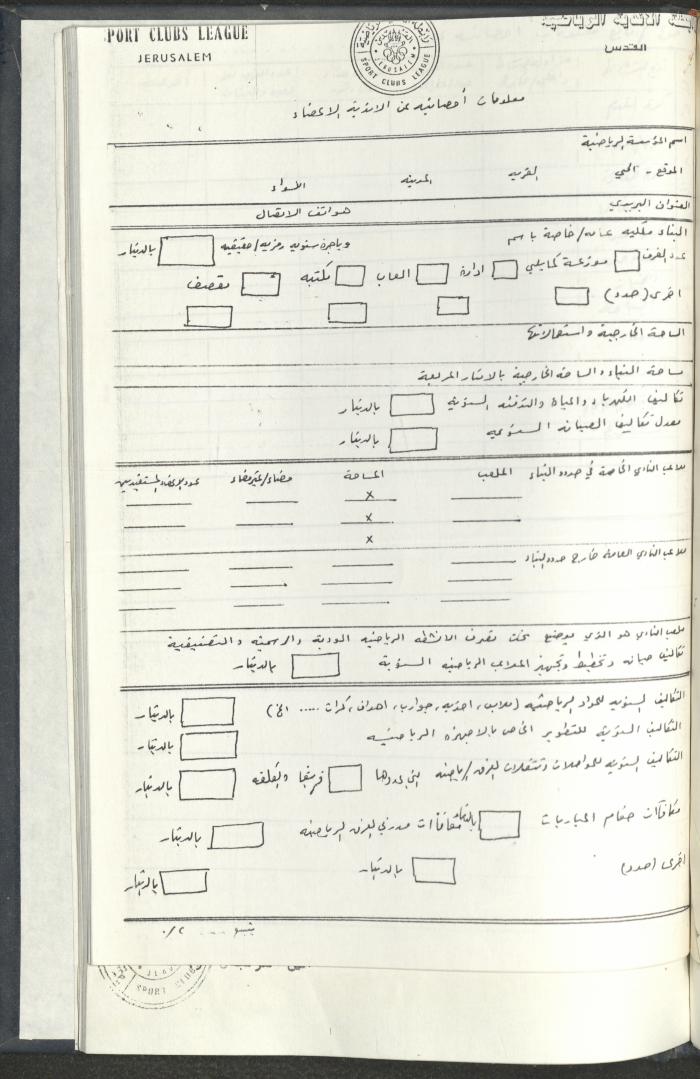 SPORT CLUBS LEAGUE
JERUSALEM
رابطة الأندية الرياضية
القدس
JERUSALEM
SPORT CLUBS LEAGUE
معلومات احصائية عن الاندية الاعضاء
اسم المؤسسة الرياضية
الموقع - الحي القرية المدينة اللواء
العنوان البريدي هواتف الاتصال
البناء ملكيه عامه/خاصة باسم وباجرة سنويه رمزيه/حقيقيه بالدينار
عدد الغرف موزعة كمايلي ادارة العاب مكتبه مقصف
اخرى (حدد)
الساحة الخارجية واستعمالاتها
مساحة البناء والساحة الخارجية بالامتار المربعة
تكاليف الكهرباء والمياه والتدفئه السنويه بالدينار
معدل تكاليف الصيانه السنويه بالدينار
ملاعب النادي الخاصة في حدود البناء الملعب المساحة مضاء/غير مضاء عدد الاعضاء المستفيدين
x
x
x
ملاعب النادي العامة خارج حدود البناء
ملعب النادي هو الذي يوضع تحت تصرف الانشطه الرياضيه الودية والرسميه والتصنيفية
تكاليف صيانه وتخطيط وتجهيز الملاعب الرياضيه السنوية بالدينار
التكاليف السنويه للمواد الرياضيه (ملابس، احذيه، جوارب، اهداف، كرات ..... الخ) بالدينار
التكاليف السنوية للتطوير الخاص بالاجهزة الرياضيه بالدينار
التكاليف السنويه للمواصلات وتنقلات الفرق الرياضيه التي عددها فريقا والكلفه بالدينار
مكافآت حكام المباريات بالدينار مكافآت مدربي الفرق الرياضيه بالدينار
اخرى (حدد) بالدينار بالدينار
يتبع .... ٢/٠
SPORT